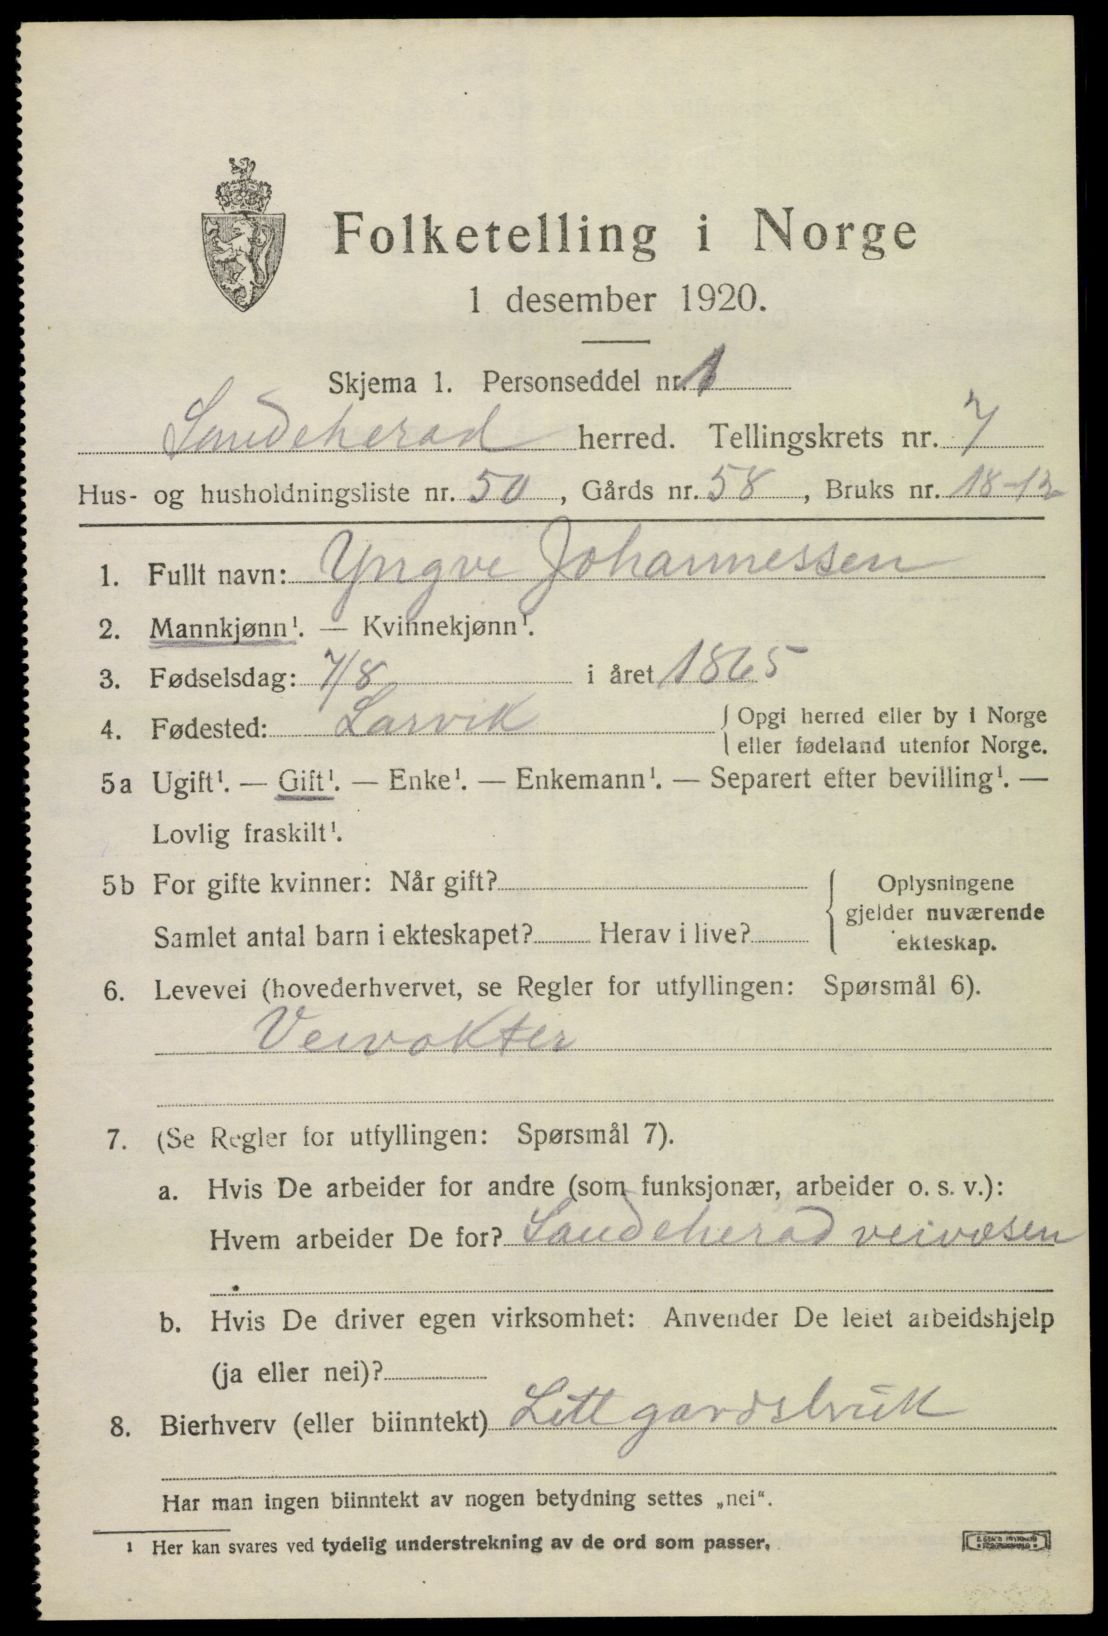 Folketelling i Norge
1 desember 1920.
Skjema 1. Personseddel nr. 1
Sandeherad herred. Tellingskrets nr. 7
Hus- og husholdningsliste nr. 50, Gårds nr. 58, Bruks nr. 18-12
1. Fullt navn: Yngve Johannessen
2. Mannkjønn¹. — Kvinnekjønn¹.
3. Fødselsdag: 7/8 i året 1865
4. Fødested: Larvik { Opgi herred eller by i Norge
eller fødeland utenfor Norge.
5a Ugift¹. — Gift¹. — Enke¹. — Enkemann¹. — Separert efter bevilling¹. —
Lovlig fraskilt¹.
5b For gifte kvinner: Når gift?
Samlet antal barn i ekteskapet? Herav i live?
Oplysningene
gjelder nuværende
ekteskap.
6. Levevei (hovederhvervet, se Regler for utfyllingen: Spørsmål 6).
Veivokter
7. (Se Regler for utfyllingen: Spørsmål 7).
a. Hvis De arbeider for andre (som funksjonær, arbeider o. s. v.):
Hvem arbeider De for? Sandeherad veivæsen
b. Hvis De driver egen virksomhet: Anvender De leiet arbeidshjelp
(ja eller nei)?
8. Bierhverv (eller biinntekt) Litt gardsbruk
Har man ingen biinntekt av nogen betydning settes „nei“.
¹ Her kan svares ved tydelig understrekning av de ord som passer.